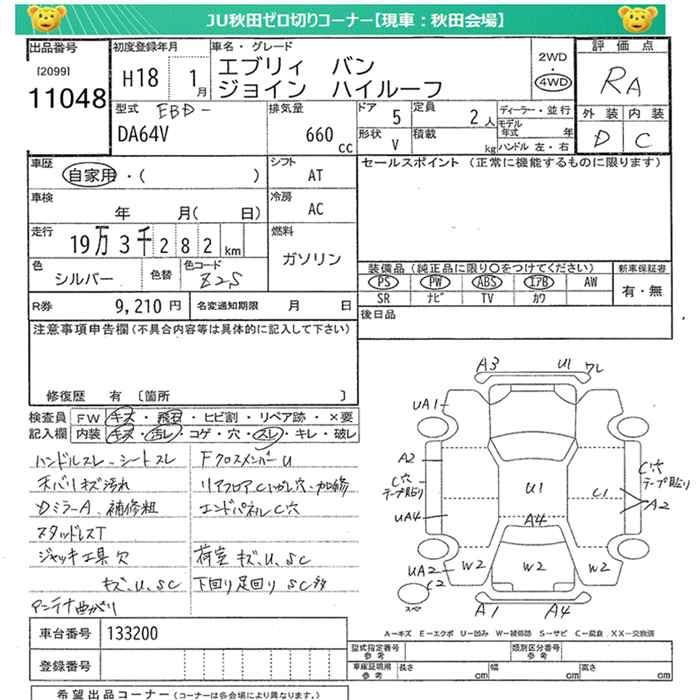 JU秋田ゼロ切りコーナー【現車：秋田会場】
出品番号
[2099]
11048
初度登録年月
H18 1月
車名・グレード
エブリィ バン
ジョイン ハイルーフ
2WD
・
4WD
評価点
RA
外装 内装
D C
型式 EBD-
DA64V
排気量
660 cc
ドア 5
定員 2人
形状 V
積載 kg
ディーラー・並行
モデル年式 年
ハンドル 左・右
車歴
自家用・( )
シフト
AT
セールスポイント (正常に機能するものに限ります)
車検
年 月( 日)
冷房
AC
走行
19万3千282km
燃料
ガソリン
色
シルバー
色替
色コード
Z2S
装備品 (純正品に限り○をつけてください)
新車保証書
PS PW ABS エアB AW
SR ナビ TV カワ
有・無
R券 9,210 円
名変通知期限 月 日
後日品
注意事項申告欄(不具合内容等は具体的に記入して下さい)
修復歴 有 〔箇所 〕
検査員
記入欄
FW キズ・飛石・ヒビ割・リペア跡・×要
内装 キズ・汚レ・コゲ・穴・スレ・キレ・破レ
ハンドルスレ、シートスレ
天バリキズ汚れ
DミラーA、補修粗
スタッドレスT
ジャッキ工具欠
キズ、U、SC
アンテナ曲がり
FクロスメンバーU
リアフロアCはがし穴・加修
エンドパネルC穴
荷室 キズ、U、SC
下回り足回り SC多
A3 U1 ワレ
UA1
A2
C穴
テープ貼り
UA4
U1
A4
C1
C穴
テープ貼り
A2
UA2
C2
W2 W2 W2
スペア
A1 A4
A－キズ E－エクボ U－凹み W－補修跡 S－サビ C－腐食 XX－交換済
車台番号 133200
登録番号
型式指定番号
参考
類別区分番号
参考
車庫証明用
参考
長さ cm 幅 cm 高さ cm
希望出品コーナー (コーナーは各会場により異なります。)